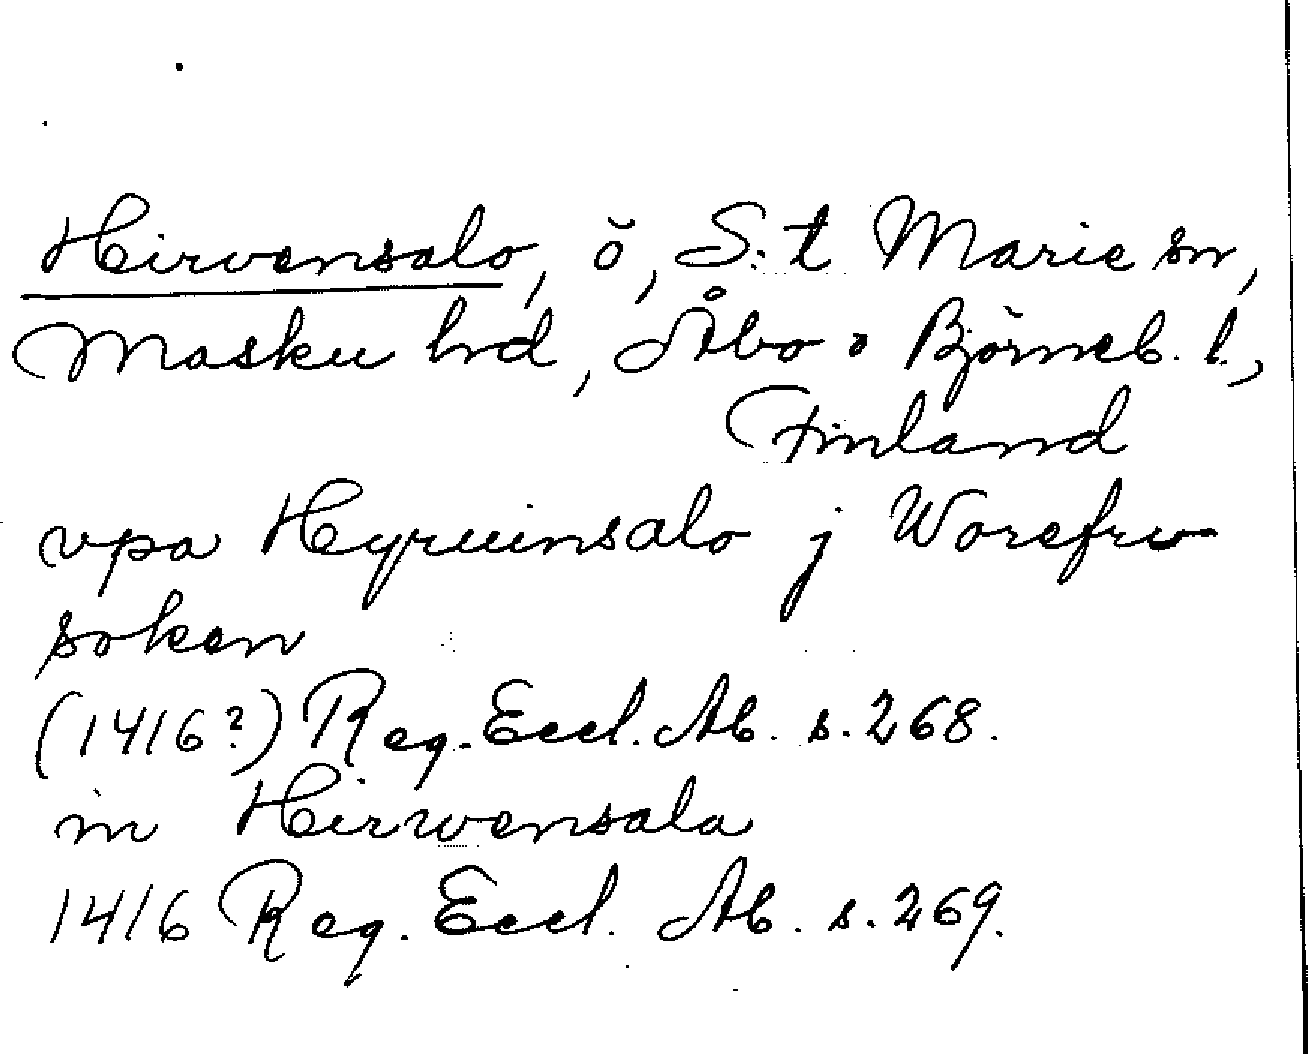 Hirvensalo, ö, S:t Marie sn,
Masku hd, Åbo o Björneb. l.,
Finland
vpa Hyruinsalo j Worefrv
soken
(1416?) Reg. Eccl. Ab. s. 268.
in Hirwensala
1416 Reg. Eccl. Ab. s. 269.